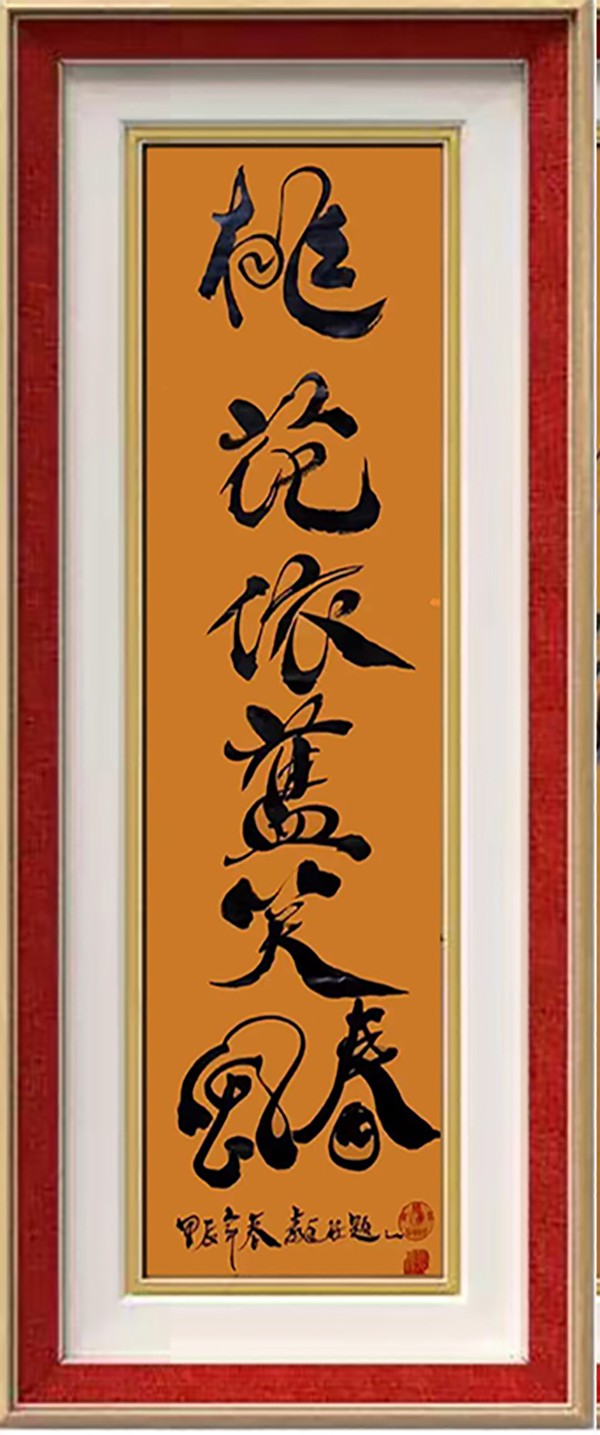 桃花依舊笑春風
甲辰年春 題